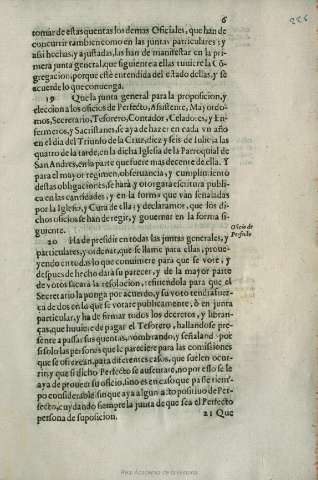 6
tomar de estas quentas los demas Oficiales, que han de
concurrir tambien como en las juntas particulares: y
assi hechas, y ajustadas, las han de manifestar en la pri
mera junta general, que siguiente a ellas tuuiere la Cõ-
gregacion, porque esté entendida del estado dellas, y se
acuerde lo que conuenga.
19 Que la junta general para la proposicion, y
eleccion a los oficios de Perfecto, Asistente, Mayordo-
mos, Secretario, Tesorero, Contador, Celadores, y En-
fermeros, y Sacristanes, se aya de hazer en cada vn año
en el dia del Triunfo de la Cruz, diez y seis de Iulio, a las
quatro de la tarde, en la dicha Iglesia de la Parroquial de
San Andres, en la parte que fuere mas decente de ella. Y
para el mayor regimen, obseruancia, y cumplimiento
destas obligaciones, se hará, y otorgará escritura publi-
ca en las cantidades, y en la forma que van señaladas
por la Iglesia, y Cura de ella; y declaramos, que los di-
chos oficios se han de regir, y gouernar en la forma si-
guiente.
Oficio de
Perfecto
20 Ha de presidir en todas las juntas generales, y
particulares, y ordenar, que se llame para ellas, proue-
yendo en todo, lo que conuiniere para que se vote, y
despues de hecho dará su parecer, y de la mayor parte
de votos sacará la resolucion, refiriendola para que el
Secretario la ponga por acuerdo, y su voto tendrá fuer-
ça de dos en lo que se votare publicamente, ò en junta
particular, y ha de firmar todos los decretos, y libran-
ças, que huuiere de pagar el Tesorero, hallandose pre-
sente a passar sus quentas, nombrando, y señalando por
si solo las personas que le pareciere para las comissiones
que se ofrezcan, para diferentes casos, que suelen ocur-
rir, y que si dicho Perfecto se ausentare, no por esso se le
aya de proueer su oficio, sino es en caso que passe tiem-
po considerable sin que aya algun acto positiuo de Per-
fecto, cuydando siempre la junta de que sea el Perfecto
persona de suposicion.
21 Que
Real Academia de la Historia